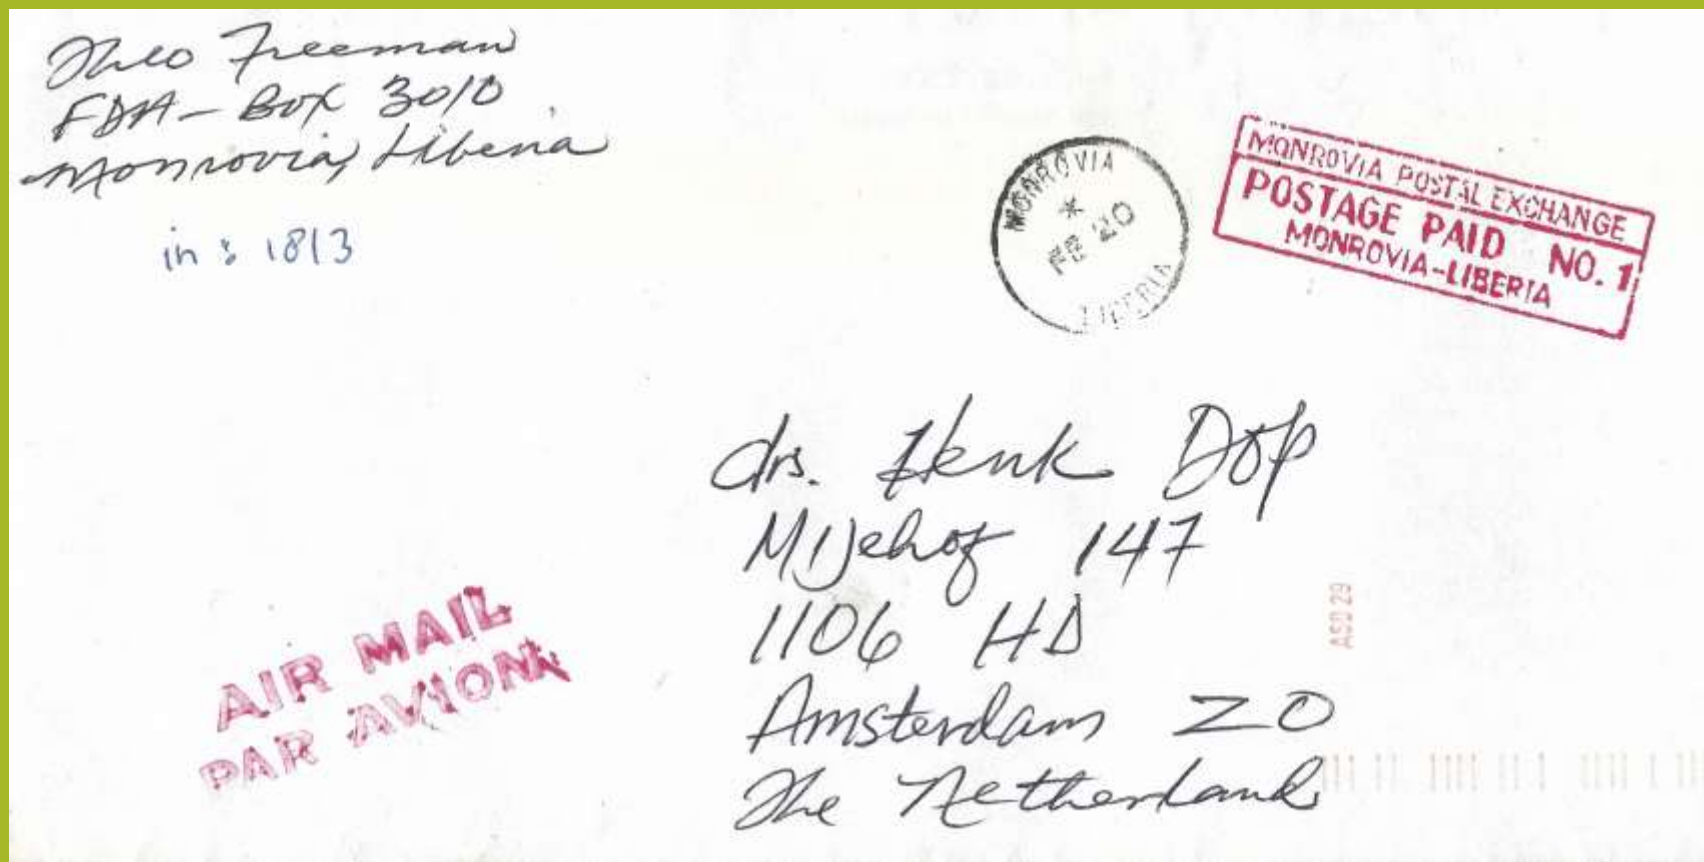 Theo Freeman
FDA - Box 3010
Monrovia, Liberia
in : 18/3
MONROVIA
*
FEB 20
LIBERIA
MONROVIA POSTAL EXCHANGE
POSTAGE PAID NO. 1
MONROVIA-LIBERIA
drs. Henk Dop
Mijehof 147
1106 HD
Amsterdam ZO
The Netherland
ASD 29
AIR MAIL
PAR AVION